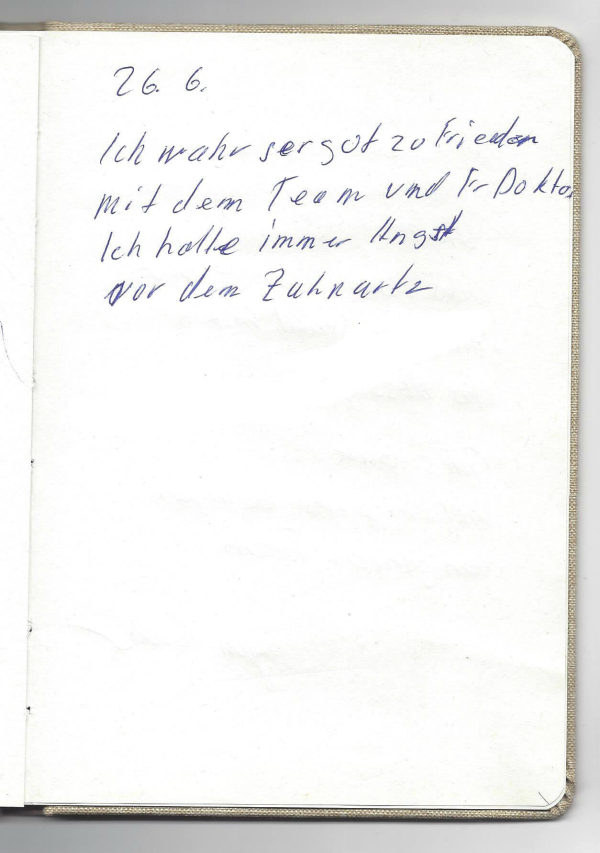 26. 6.
Ich wahr ser gut zu Frieden
mit dem Team und Fr Doktor
Ich hatte immer Angst
vor dem Zahnartz